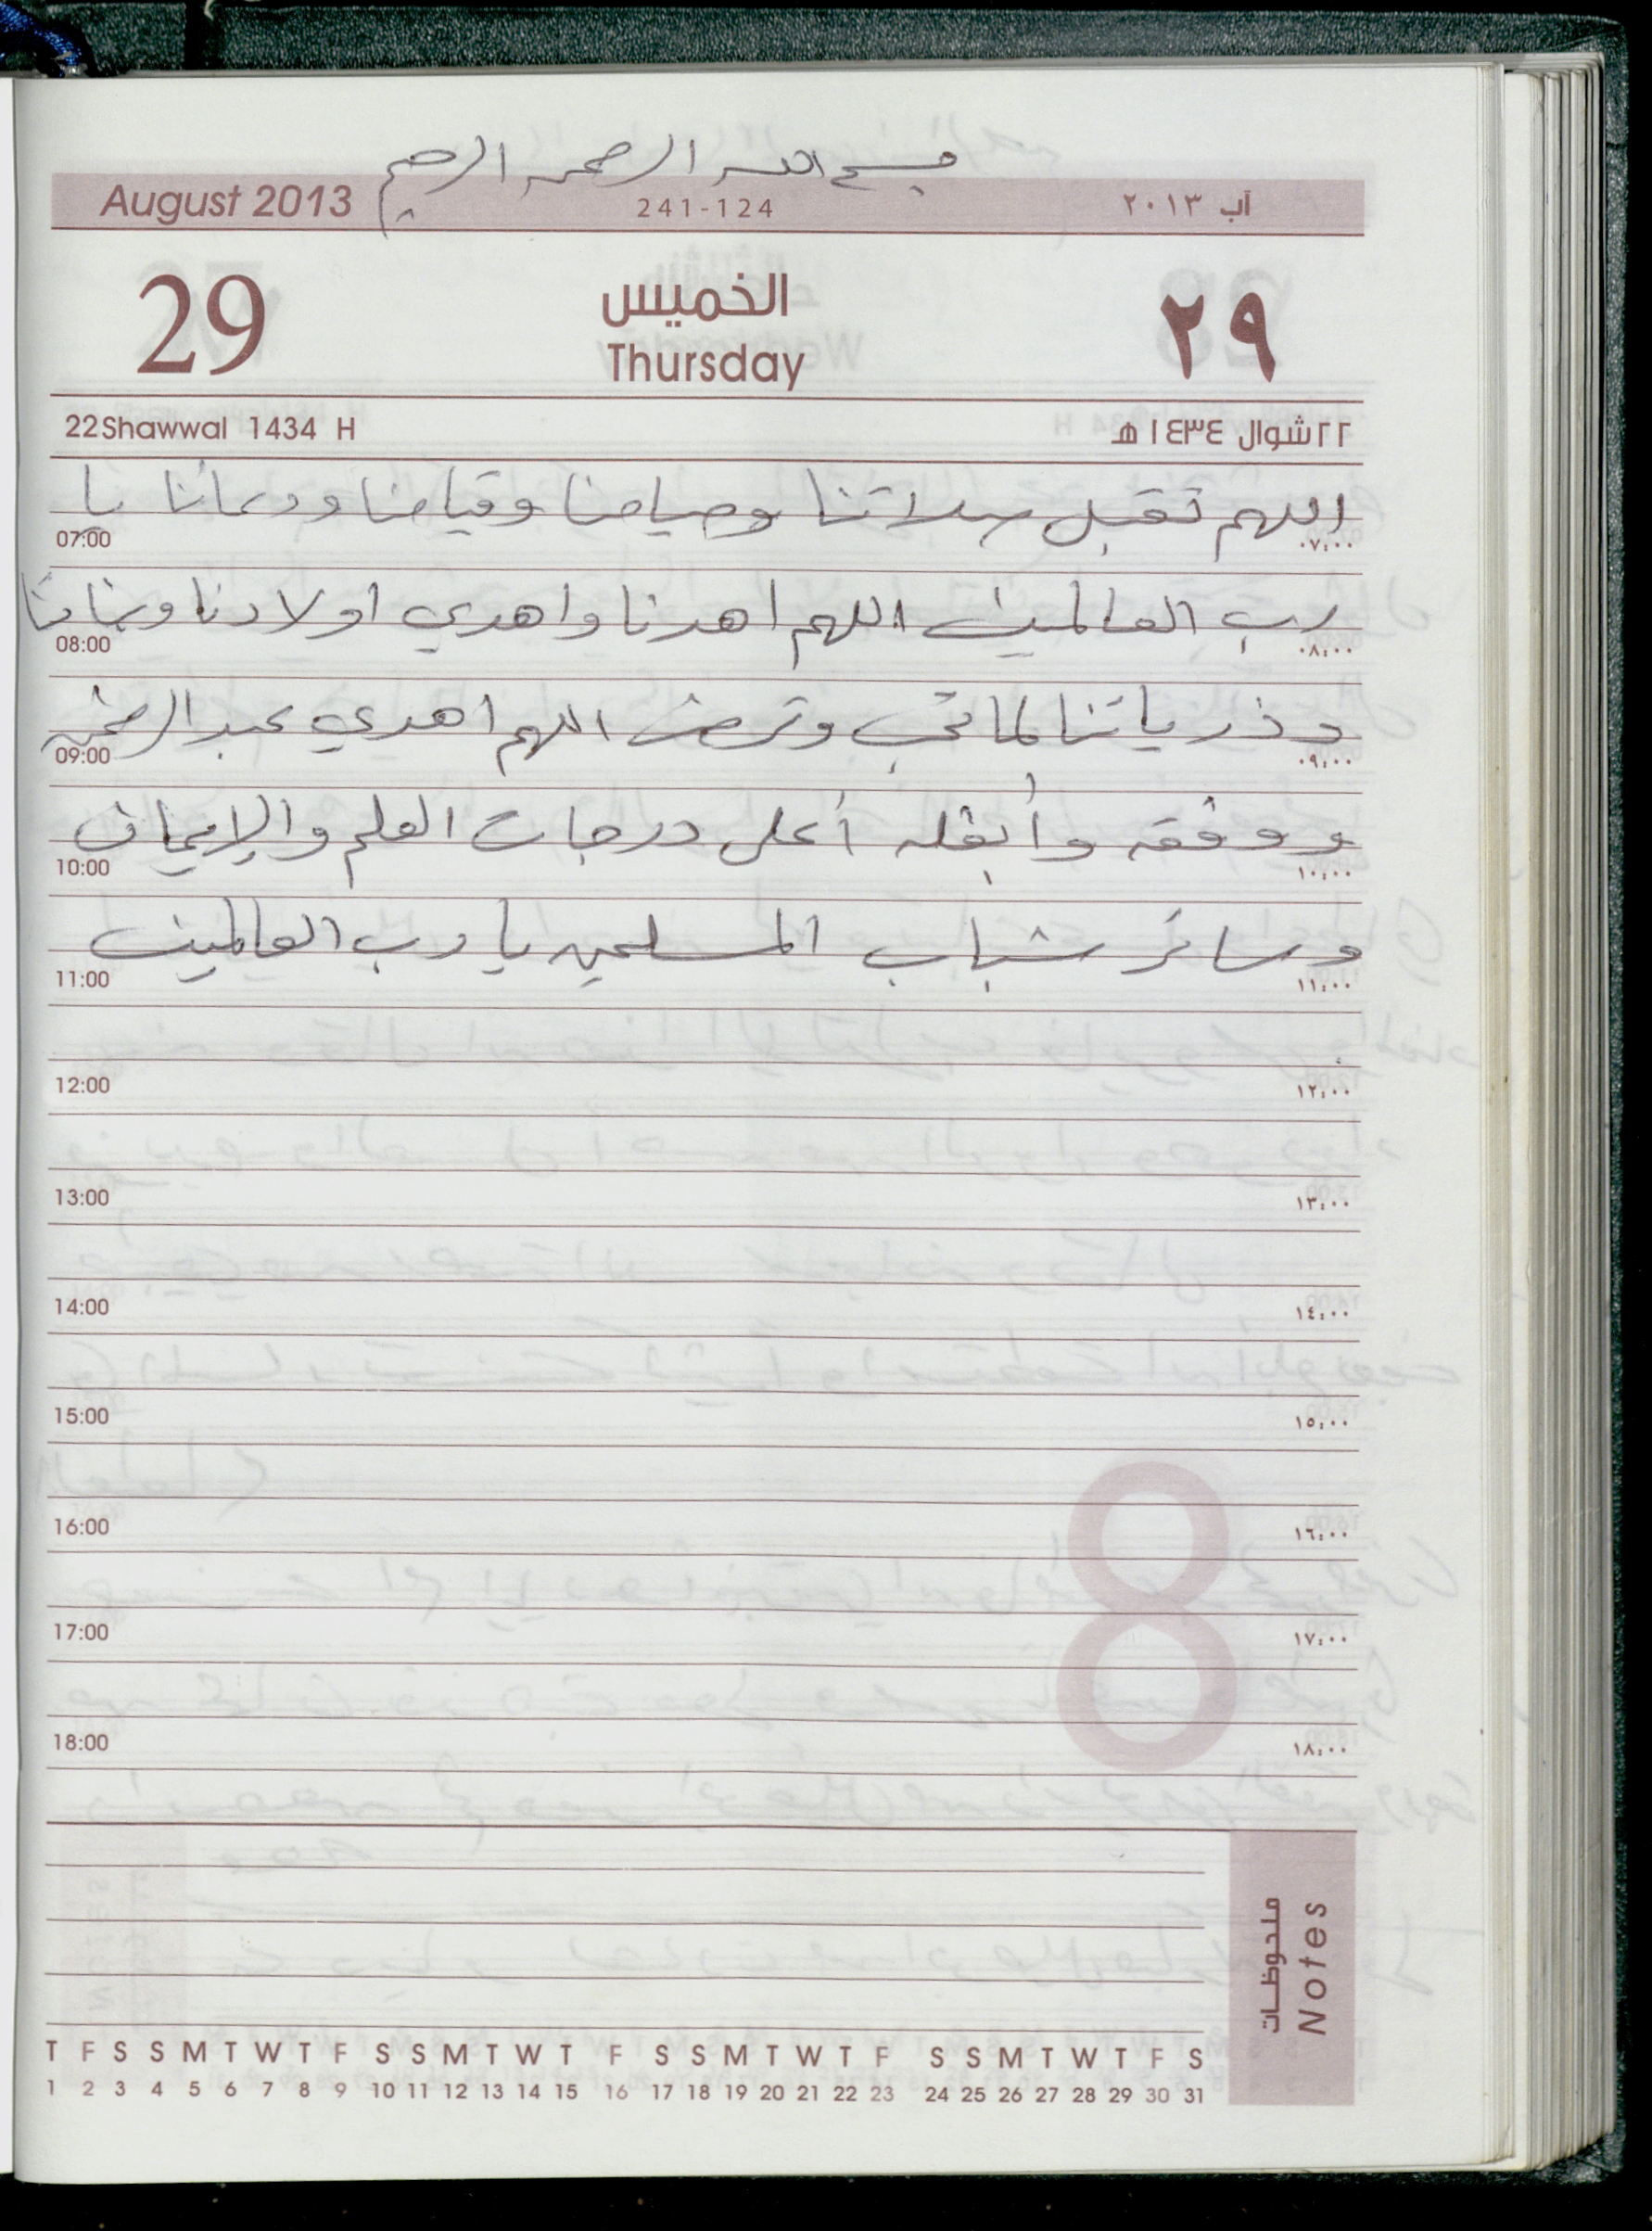 بسم الله الرحمن الرحيم
August 2013 241-124 آب ٢٠١٣
29 الخميس ٢٩
Thursday
22 Shawwal 1434 H ٢٢ شوال ١٤٣٤ هـ
اللهم تقبل صلاتنا وصيامنا وقيامنا ودعائنا يا
07:00 ٠٧:٠٠
رب العالمين اللهم اهدنا واهدي اولادنا وبناتنا
08:00 ٠٨:٠٠
وذرياتنا لما تحب وترضى اللهم اهدي عبد الرحمن
09:00 ٠٩:٠٠
ووفقه وأبغله أعلى درجات العلم والإيمان
10:00 ١٠:٠٠
وسائر شباب المسلمين يا رب العالمين
11:00 ١١:٠٠
12:00 ١٢:٠٠
13:00 ١٣:٠٠
14:00 ١٤:٠٠
15:00 ١٥:٠٠
16:00 ١٦:٠٠
17:00 ١٧:٠٠
18:00 ١٨:٠٠
8
ملحوظات
Notes
T F S S M T W T F S S M T W T F S S M T W T F S S M T W T F S
1 2 3 4 5 6 7 8 9 10 11 12 13 14 15 16 17 18 19 20 21 22 23 24 25 26 27 28 29 30 31